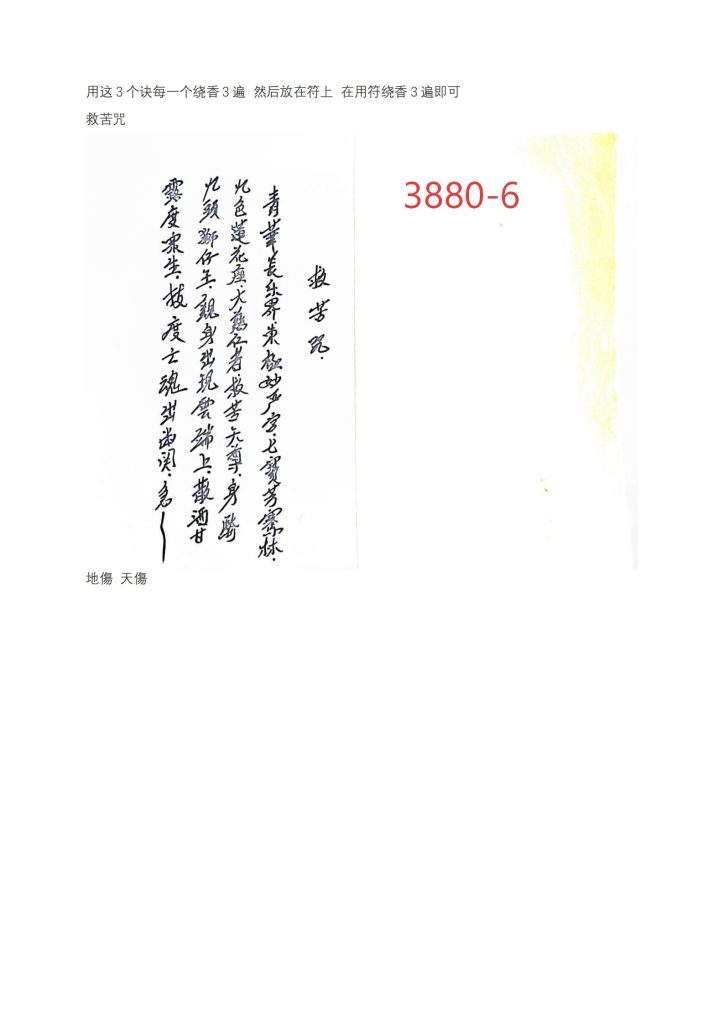 用这3个诀每一个绕香3遍 然后放在符上 在用符绕香3遍即可
救苦咒
3880-6
救苦咒.
青華長乐界.東極妙严宮.七寳芳騫林.
九色蓮花座.大慈仁者.救苦天尊.身騎
九頭獅仔王.親身出現雲端上.散洒甘
露度衆生.拔度亡魂出幽関.急
地傷 天傷